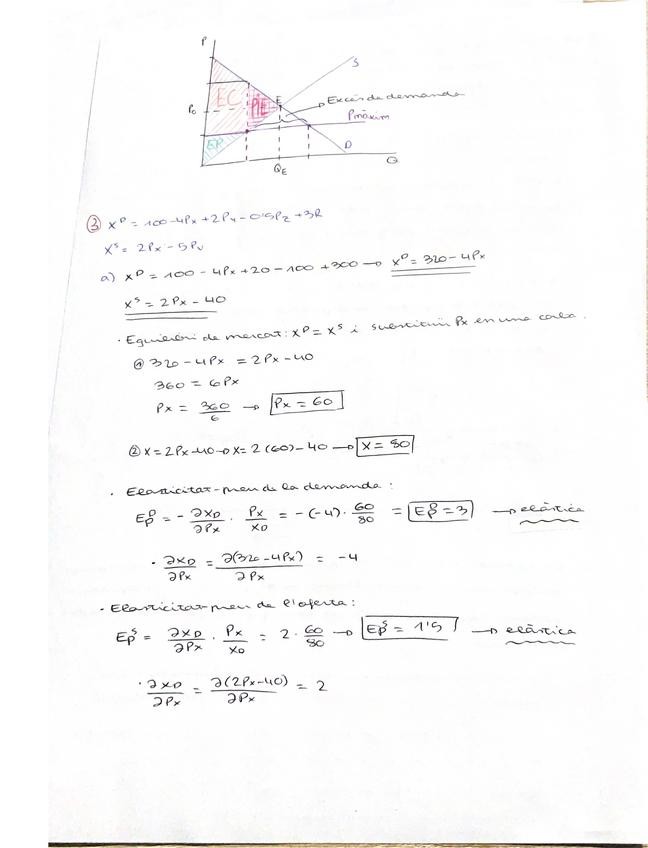 P
S
EC
PIE
E
Excés de demanda
P₀
Pmàxim
EP
D
Q
Q_E
③ X^D = 100 - 4Px + 2Py - 0'5Pz + 3R
X^S = 2Px - 5Pv
a) X^D = 100 - 4Px + 20 - 100 + 300 → X^D = 320 - 4Px
X^S = 2Px - 40
· Equilibri de mercat: X^D = X^S i substituïm Px en una corba.
① 320 - 4Px = 2Px - 40
360 = 6Px
Px = 360/6 → Px = 60
② X = 2Px - 40 → X = 2(60) - 40 → X = 80
· Elasticitat-preu de la demanda:
E_P^D = - ∂X_D/∂Px · Px/X_D = -(-4) · 60/80 = E_P^D = 3 → elàstica
· ∂X_D/∂Px = ∂(320-4Px)/∂Px = -4
· Elasticitat-preu de l'oferta:
E_P^S = ∂X_D/∂Px · Px/X_D = 2 · 60/80 → E_P^S = 1'5 → elàstica
· ∂X_D/∂Px = ∂(2Px-40)/∂Px = 2